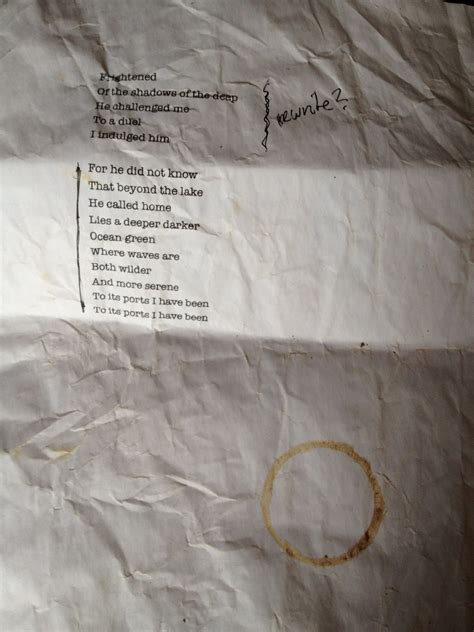 Frightened
Of the shadows of the deep
He challenged me
To a duel
I indulged him
rewrite?
For he did not know
That beyond the lake
He called home
Lies a deeper darker
Ocean green
Where waves are
Both wilder
And more serene
To its ports I have been
To its ports I have been